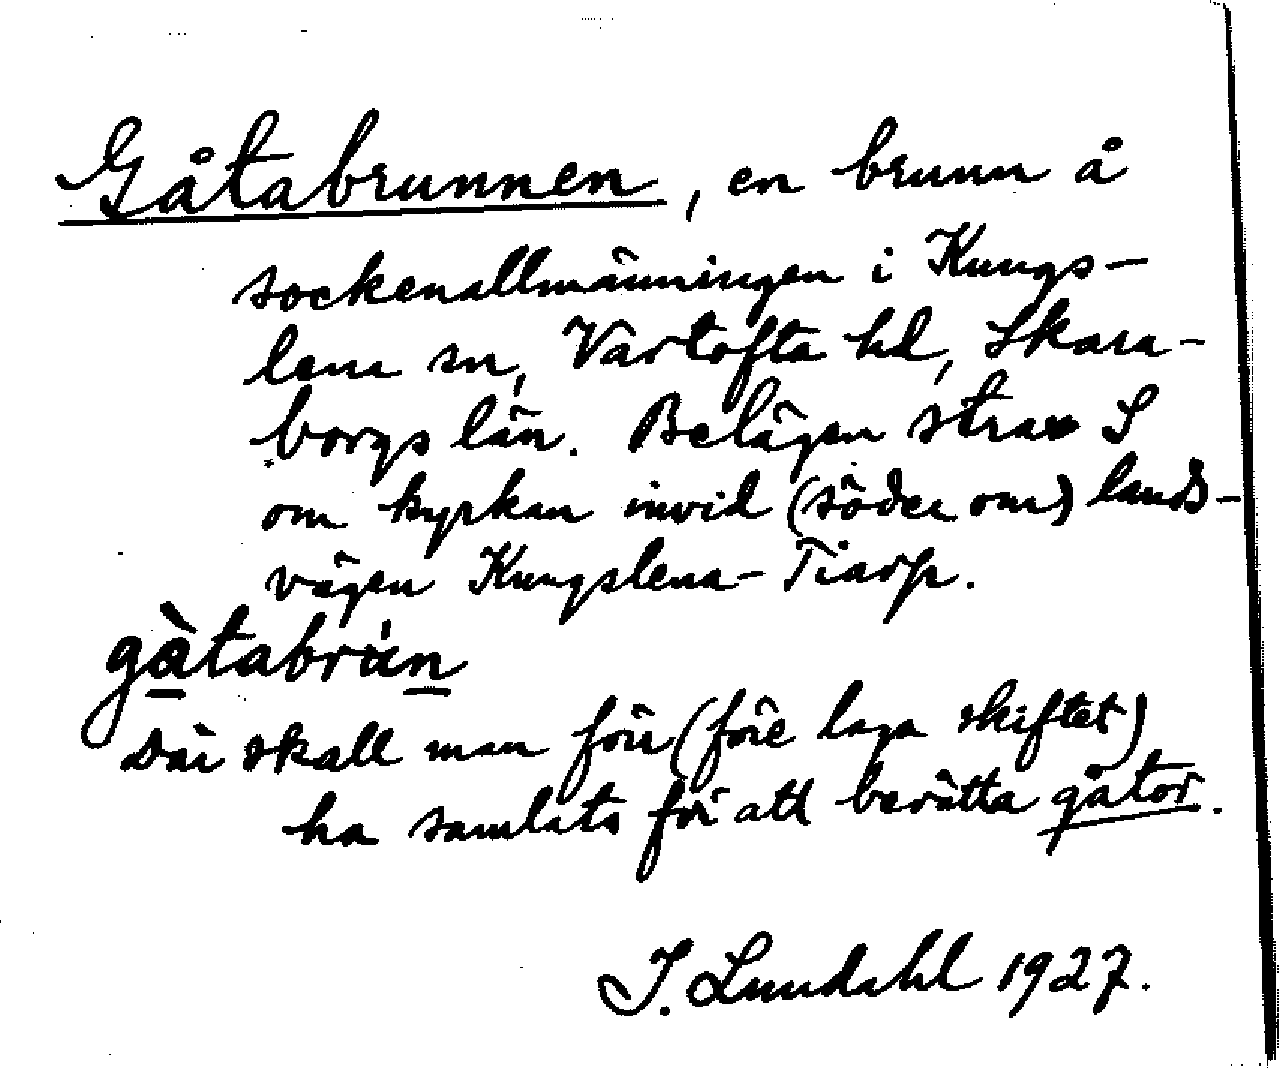 Gåtabrunnen, en brunn å
sockenallmänningen i Kungs-
lena sn, Vartofta hd, Skara-
borgs län. Belägen strax S
om kyrkan invid (söder om) lands-
vägen Kungslena-Tiarp.
gàtabrún
Där skall man förr (före laga skiftet)
ha samlats för att berätta gåtor.
I. Lundahl 1927.